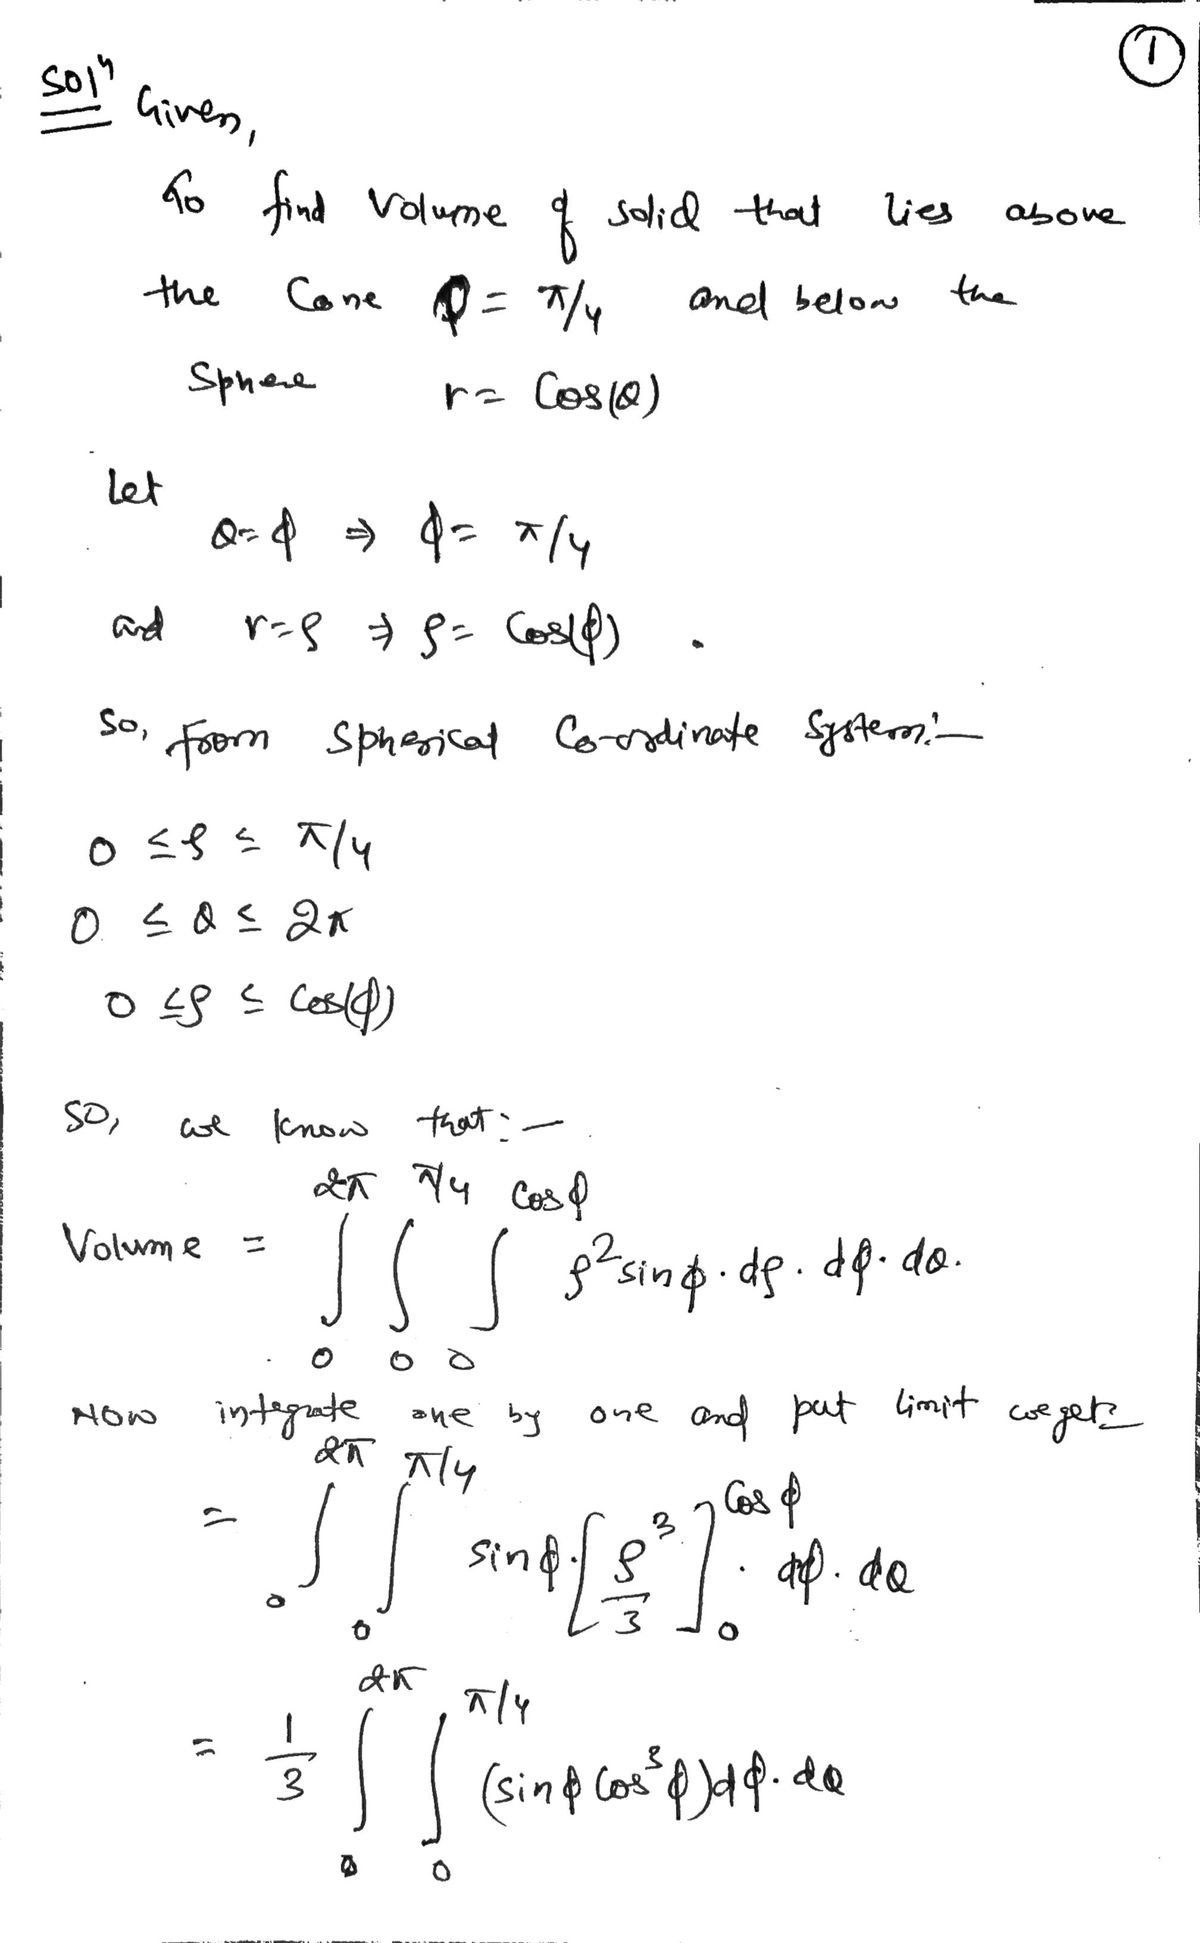 ①
Solⁿ Given,
To find Volume of solid that lies above
the Cone φ = π/4 and below the
Sphere r = Cos(θ)
Let
θ = φ ⇒ φ = π/4
and r = ρ ⇒ ρ = Cos(φ)
So, from Spherical Co-ordinate System:—
0 ≤ ρ ≤ π/4
0 ≤ θ ≤ 2π
0 ≤ ρ ≤ Cos(φ)
So, we know that:—
Volume = ∫₀^{2π} ∫₀^{π/4} ∫₀^{Cos φ} ρ² sin φ · dρ · dφ · dθ.
Now integrate one by one and put limit we get:—
= ∫₀^{2π} ∫₀^{π/4} sin φ · [ρ³/3]₀^{Cos φ} · dφ · dθ
= 1/3 ∫₀^{2π} ∫₀^{π/4} (sin φ Cos³ φ) dφ · dθ